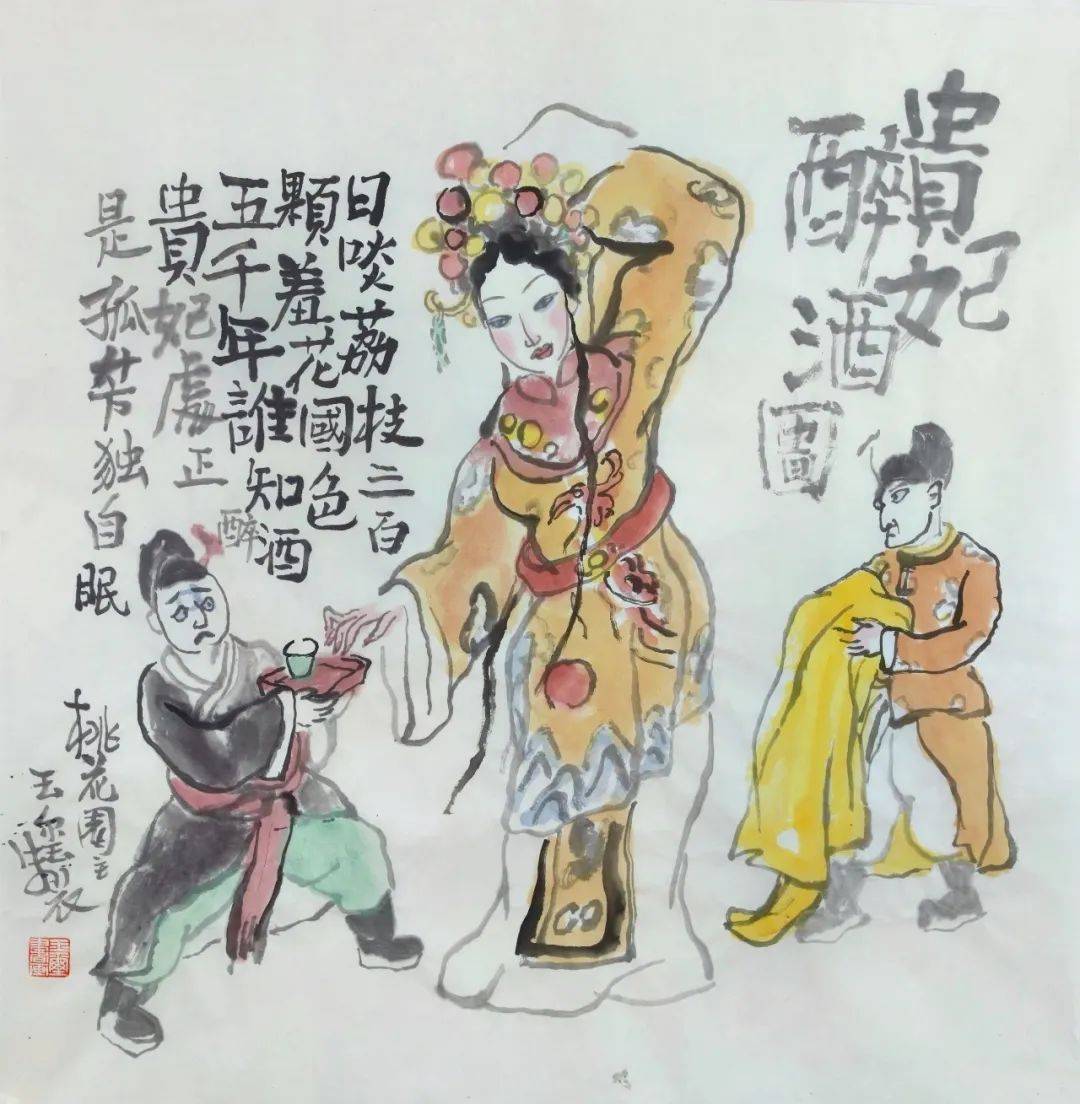 貴妃
醉酒圖
日啖荔枝三百
顆羞花國色
五千年誰知酒
醉
貴妃處正
是孤独自眠
桃花園主